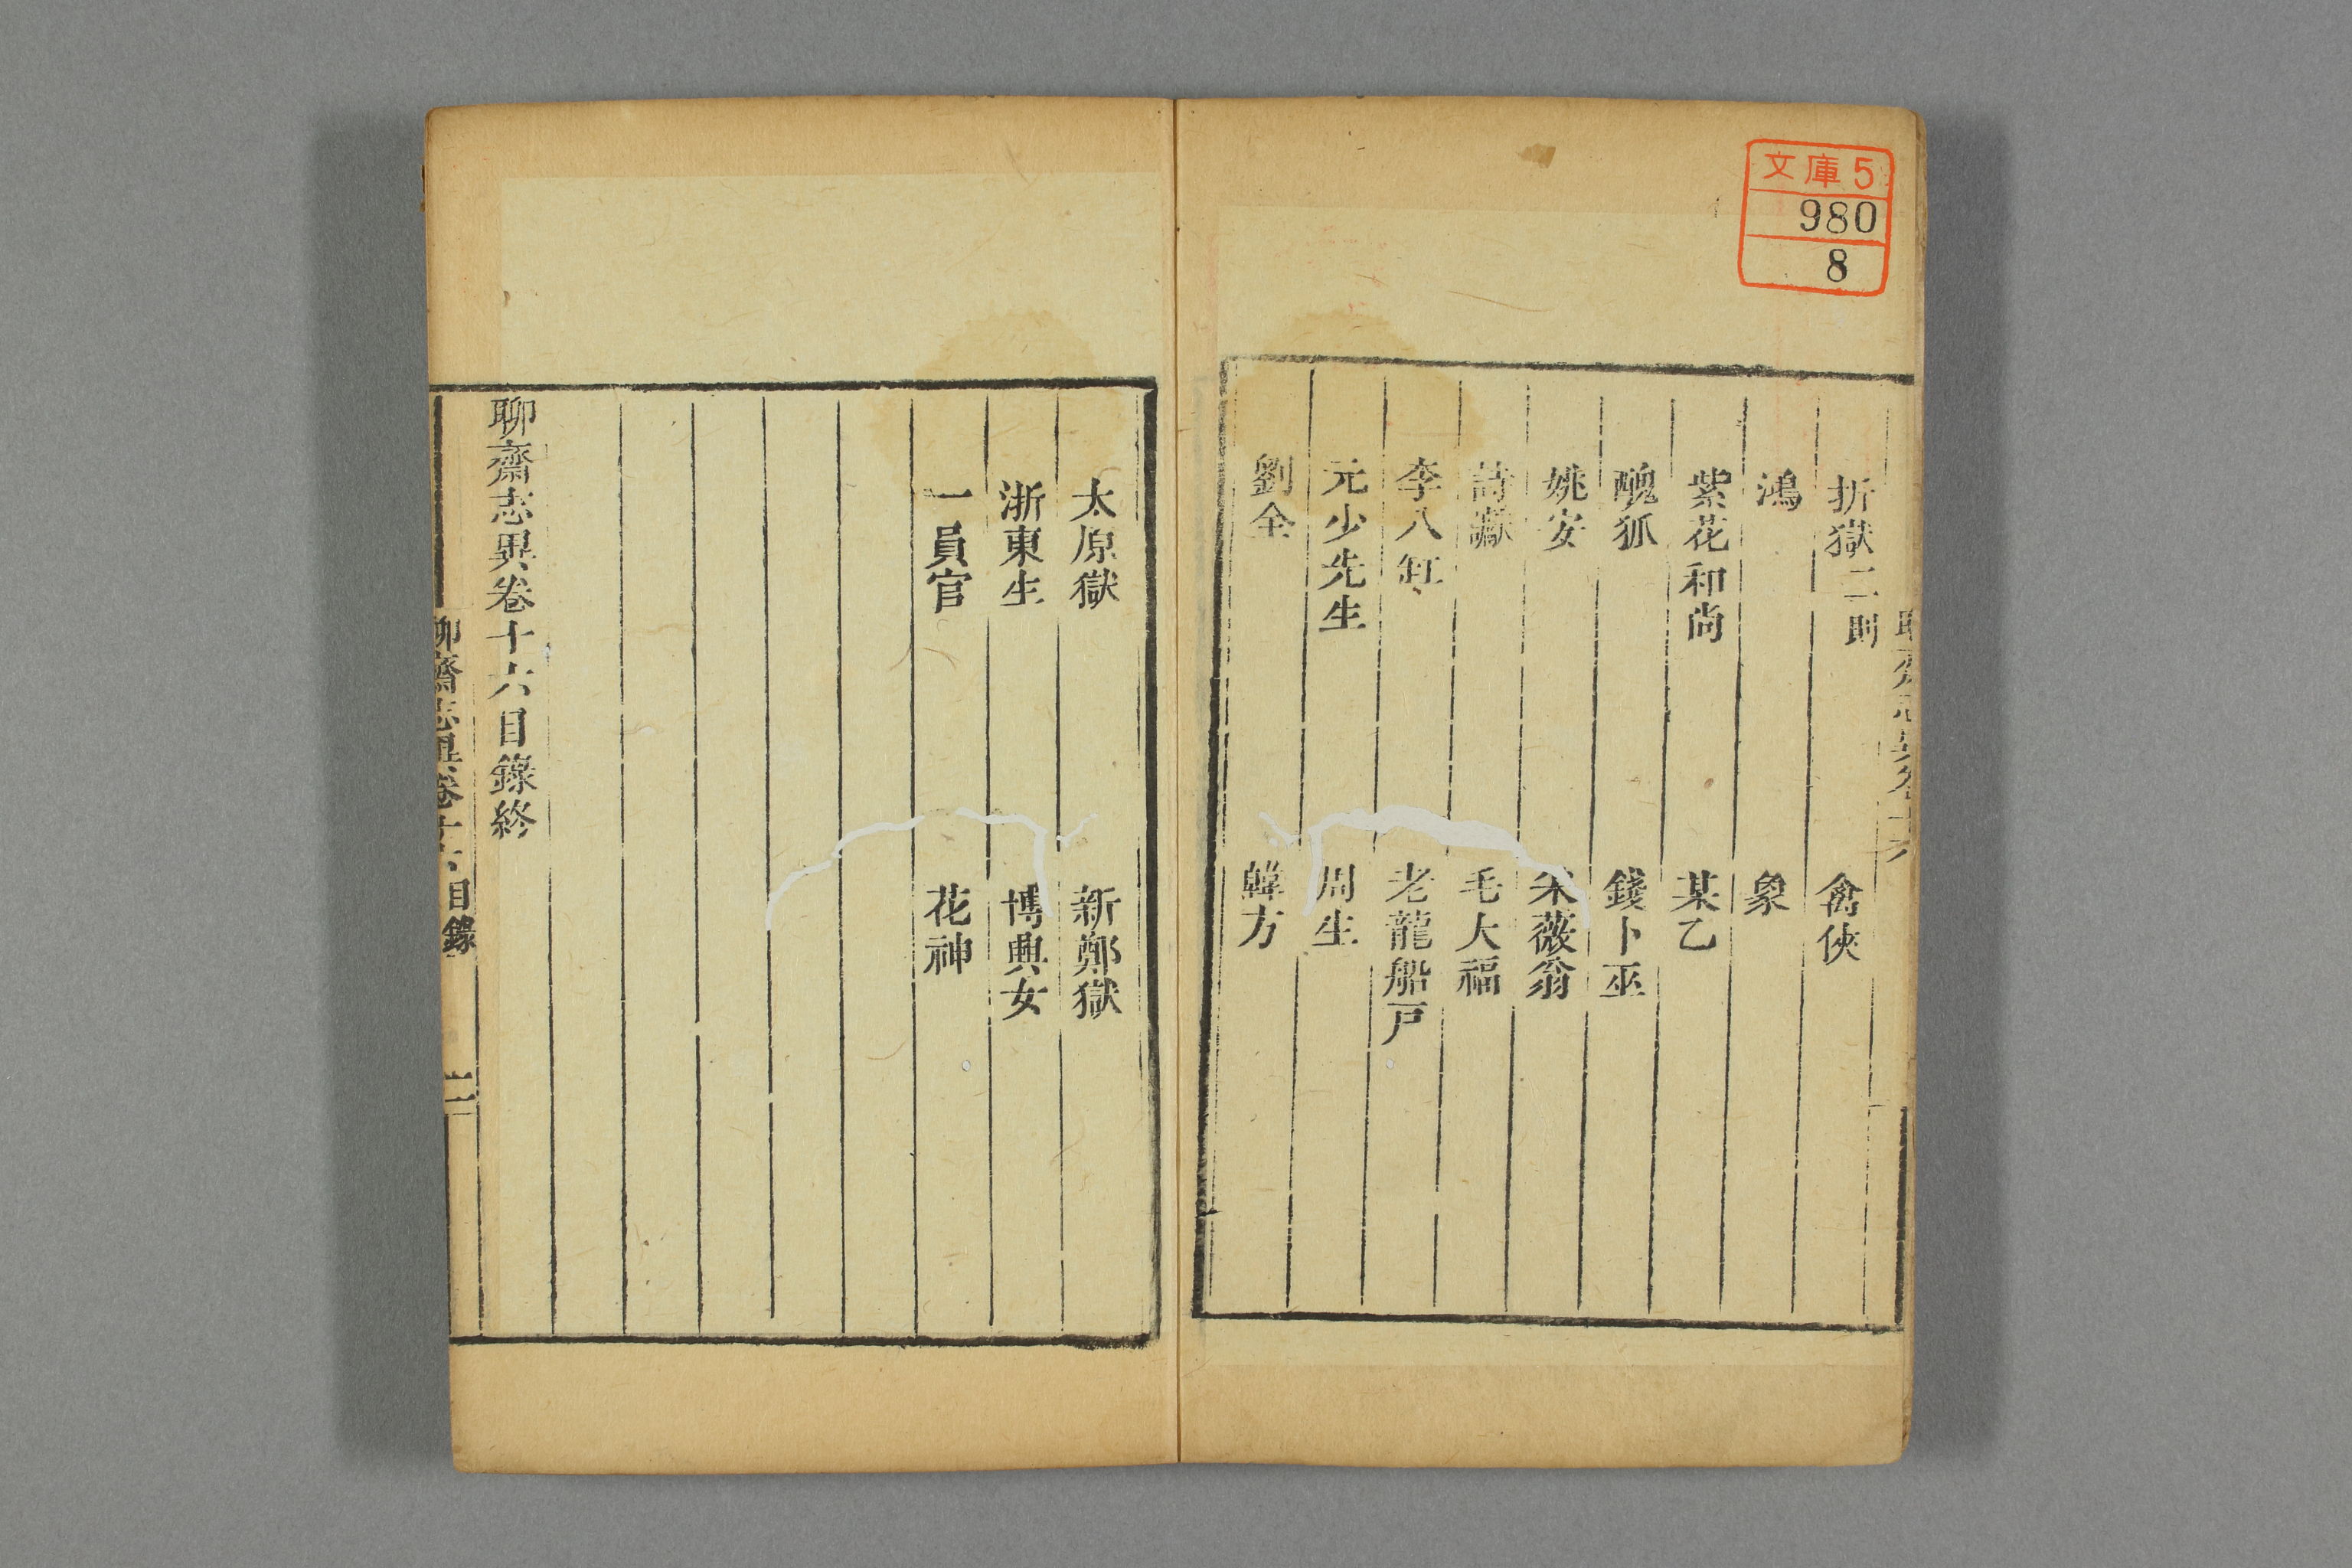 文庫5
980
8
折獄二則 禽俠
鴻 象
紫花和尚 某乙
醜狐 錢卜巫
姚安 采薇翁
詩讞 毛大福
李八缸 老龍船戶
元少先生 周生
劉全 韓方
太原獄 新鄭獄
浙東生 博興女
一員官 花神
聊齋志異卷十六目錄終
聊齋志異卷十六目錄 二